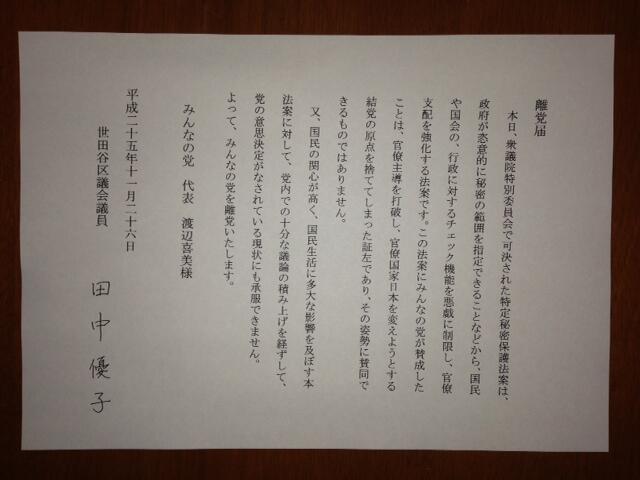 離党届
本日、衆議院特別委員会で可決された特定秘密保護法案は、
政府が恣意的に秘密の範囲を指定できることなどから、国民
や国会の、行政に対するチェック機能を悪戯に制限し、官僚
支配を強化する法案です。この法案にみんなの党が賛成した
ことは、官僚主導を打破し、官僚国家日本を変えようとする
結党の原点を捨ててしまった証左であり、その姿勢に賛同で
きるものではありません。
又、国民の関心が高く、国民生活に多大な影響を及ぼす本
法案に対して、党内での十分な議論の積み上げを経ずして、
党の意思決定がなされている現状にも承服できません。
よって、みんなの党を離党いたします。
みんなの党 代表 渡辺喜美様
平成二十五年十一月二十六日
世田谷区議会議員 田中優子